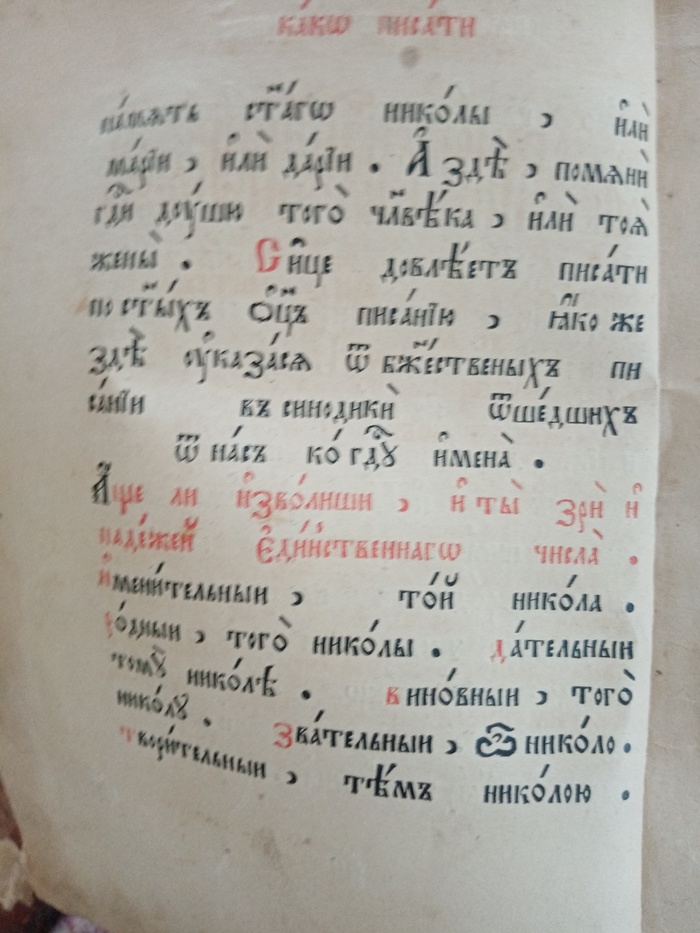 какѡ писа́ти
па́мѧть ст҃а́гѡ нико́лы , и҆лѝ
мрі́и , и҆лѝ да́рїи . А҆ здѣ̀ , помѧнѝ
гдⷭ҇и дꙋ́шю тогѡ̀ чл҃вѣ́ка , и҆лѝ тоѧ̀
жены̀ . Си́це довлѣ́етъ писа́ти
по ст҃ы́хъ ѻ҆ц҃ъ писа́нїю , ꙗ҆́ко же
здѣ̀ ᲂу҆каза́сѧ ѿ бж҃е́ственыхъ пи
са́нїи въ синодикѝ ѿше́дшихъ
ѿ на́съ ко́ гдⷭ҇ꙋ и҆мена̀ .
А҆́ще ли и҆зво́лиши , и҆ ты̀ зрѝ и҆
паде́жей є҆ди́нственнагѡ числа̀ .
и҆мени́тельныи , то́й нико́ла .
ро́дныи , того̀ нико́лы . да́тельныи
томꙋ̀ нико́лѣ . вино́вныи , того̀
нико́лꙋ . Зва́тельныи , ѽ нико́ло .
твори́тельныи , тѣ́мъ нико́лою .